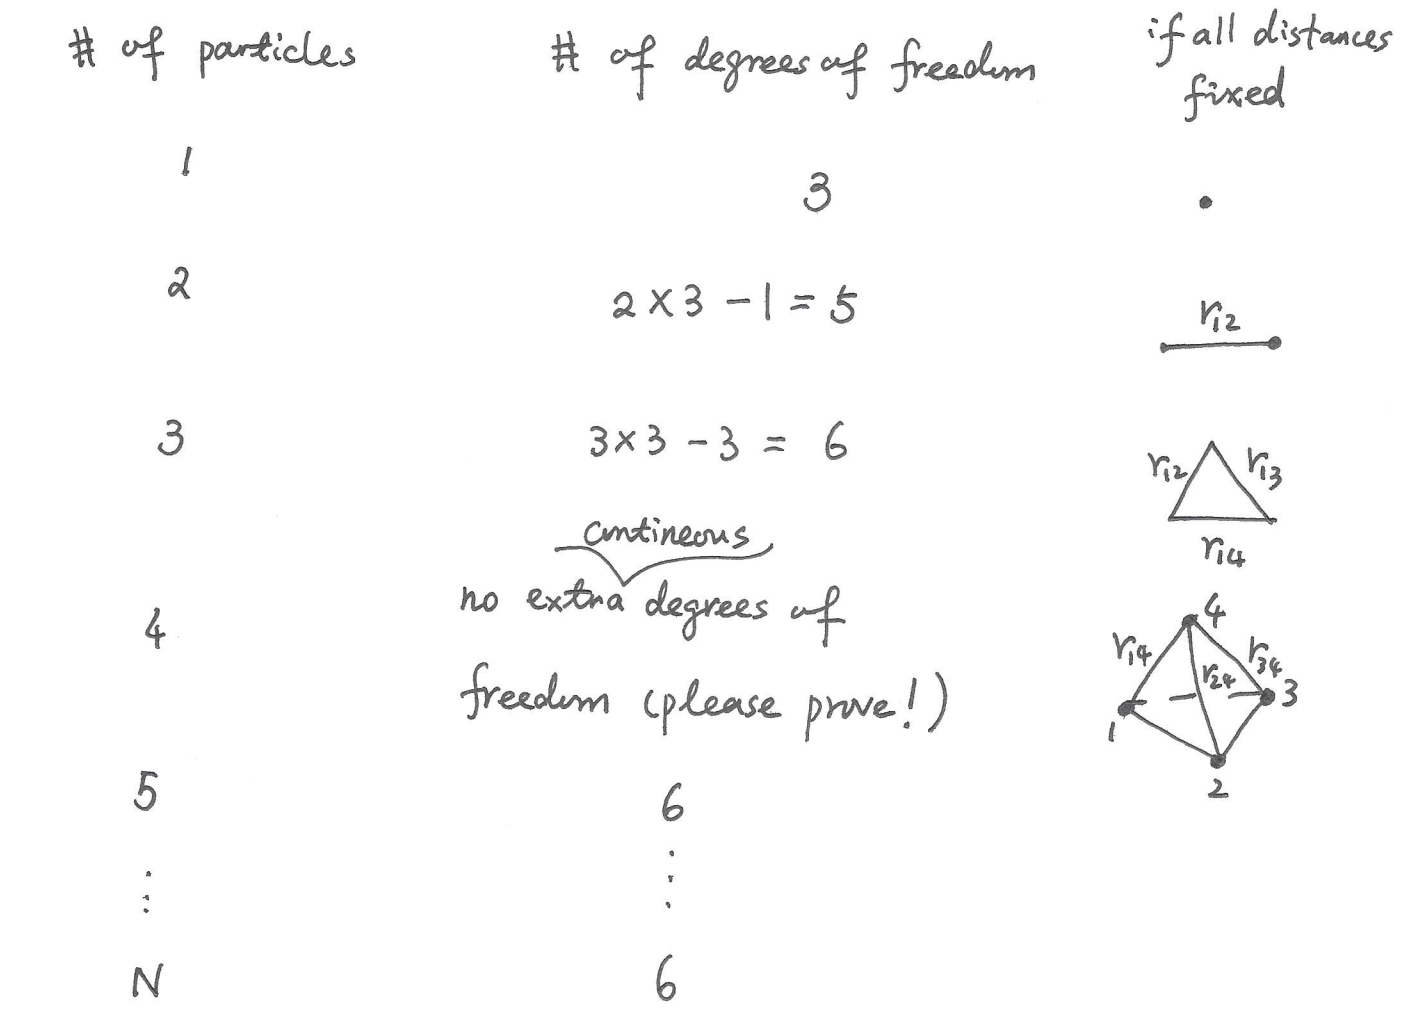 # of particles
# of degrees of freedom
if all distances
fixed
1
3
2
2 × 3 - 1 = 5
r12
3
3 × 3 - 3 = 6
r12
r13
r14
contineous
4
no extra degrees of
freedom (please prove!)
4
r14
r24
r34
3
1
2
5
6
⋮
⋮
N
6